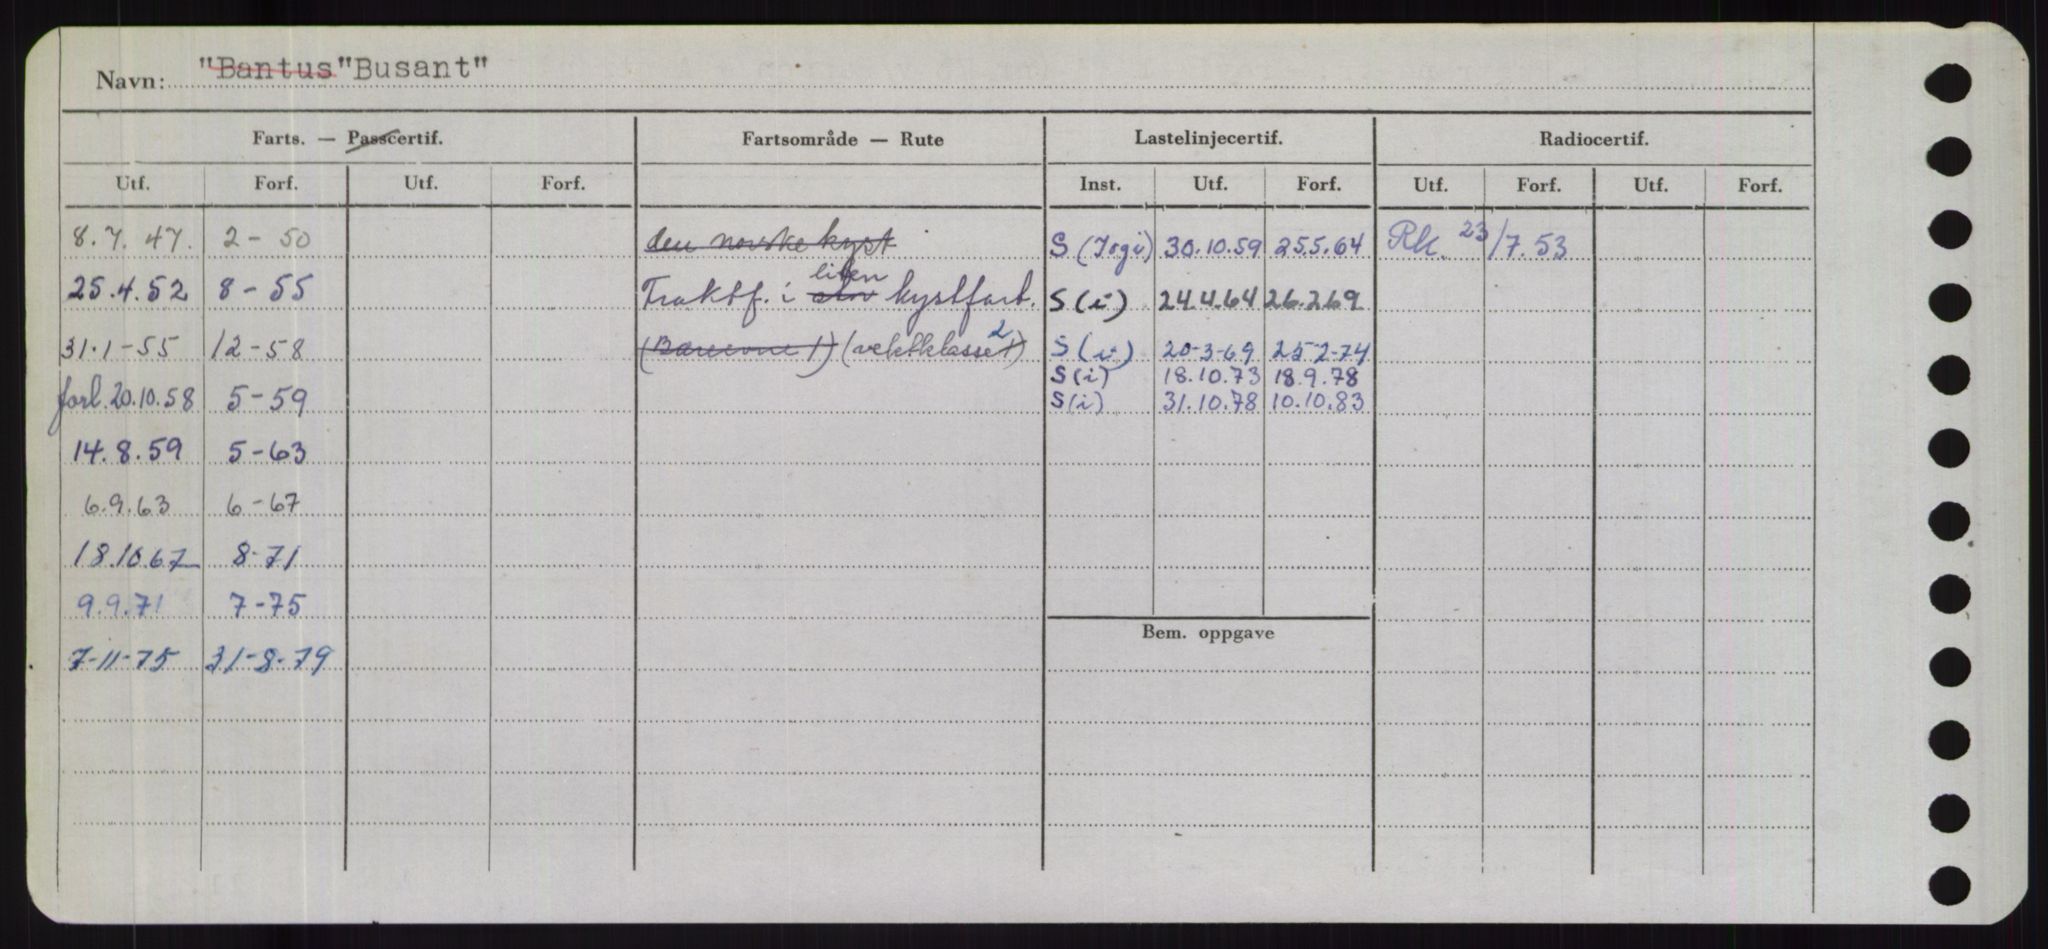 Navn: "Bantus" "Busant"
Farts. — Passcertif. Fartsområde — Rute Lastelinjecertif. Radiocertif.
Utf. Forf. Utf. Forf. Inst. Utf. Forf. Utf. Forf. Utf. Forf.
8.7. 47. 2 - 50 den norske kyst S (Togi) 30.10.59 25.5.64 Rk. 23/7.53
liten
25.4.52 8 - 55 Traktf. i stor kystfart. S (i) 24.4.64 26.2.69
31.1-55 12-58 (Bæreevne 1) (vektklasse 1) 2 S (i) 20-3-69 25-2-74
S (i) 18.10.73 18.9.78
forl. 20.10.58 5-59 S (i) 31.10.78 10.10.83
14.8.59 5-63
6.9.63 6-67
18.10.67 8-71
9.9.71 7-75
Bem. oppgave
7-11-75 31-8-79